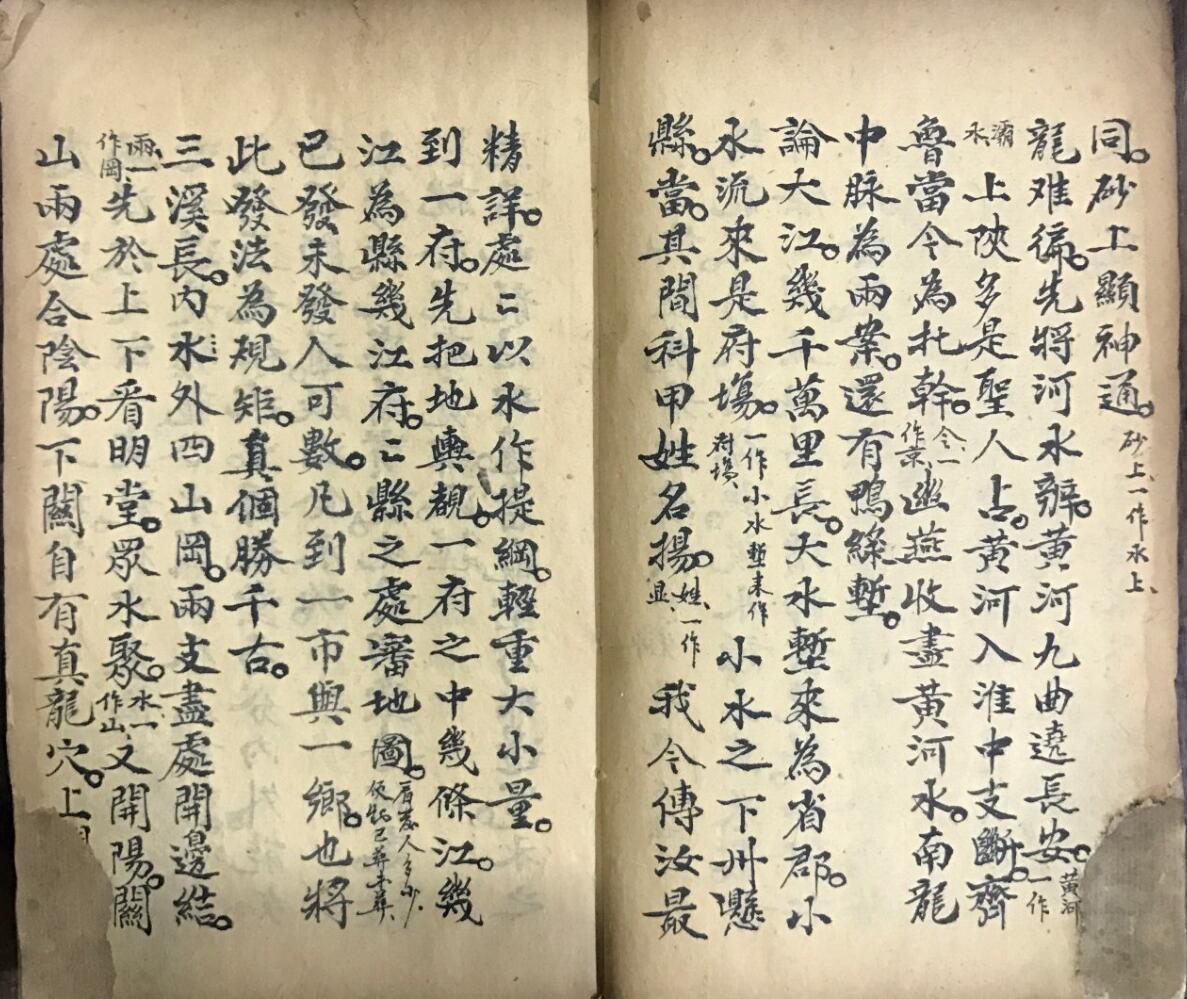 同。砂上顯神通。砂上、一作水上、
龍难徧。先將河水辨。黃河九曲遶長安。黃河一作
灞水、上陝多是聖人占。黃河入淮中支斷。齊
魯當今為北幹。今一作京、幽燕收盡黃河水。南龍
中脉為兩案。還有鴨綠塹。
論大江。幾千萬里長。大水塹來為省郡。小
水流來是府塲。一作小水塹来作府塲、小水之下州懸
縣。當。其間科甲姓名揚。姓、一作显我今傳汝最
精詳。處二以水作提綱。輕重大小量。
到一府。先把地輿覩。一府之中幾條江。幾
江為縣幾江府。二縣之處審地圖。
已發未發人可數。凡到一市與一鄉。也將
此發法為規矩。真個勝千古。
三溪長。內水外四山岡。兩支盡處開邊結。
兩一作岡、先於上下看明堂。眾水聚。水一作山、又開陽。關
山兩處合陰陽。下關自有真龍穴。上